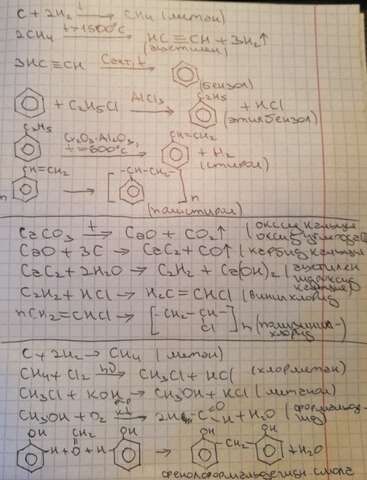 C + 2H₂ →t CH₄ (метан)
2CH₄ →t>1500°C HC≡CH + 3H₂↑
(ацетилен)
3HC≡CH →Cакт, t
(бензол)
C₂H₅
+ C₂H₅Cl →AlCl₃ + HCl
(этилбензол)
C₂H₅ CH=CH₂
→Cr₂O₃·Al₂O₃, t=600°C + H₂
(стирол)
n CH=CH₂ → [-CH-CH₂-]n
(полистирол)
CaCO₃ →t CaO + CO₂↑ (оксид кальция
оксид углерода
CaO + 3C → CaC₂ + CO↑ (карбид кальция
CaC₂ + 2H₂O → C₂H₂ + Ca(OH)₂ (ацетилен
гидроксид
кальция)
C₂H₂ + HCl → H₂C=CHCl (винилхлорид
nCH₂=CHCl → [-CH₂-CH-]n
Cl
хлорид)
C + 2H₂ → CH₄ (метан)
CH₄ + Cl₂ →hν CH₃Cl + HCl (хлорметан)
CH₃Cl + KOH → CH₃OH + KCl (метанол)
CH₃OH + O₂ →
+ H₂O
OH CH₂ OH OH OH
H + O + H → CH₂ + H₂O
фенолоформальдегидн смола